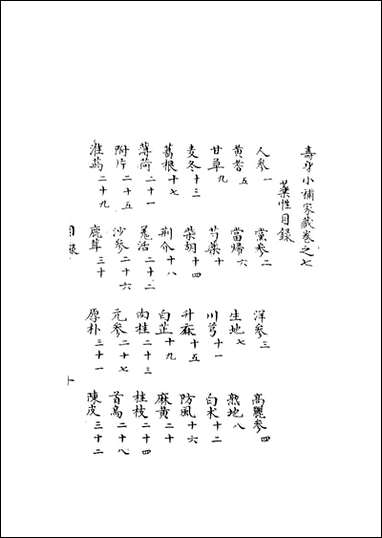 壽身小補家藏卷之七
藥性目錄
人參一 黨參二 洋參三 高麗參四
黃耆五 當歸六 生地七 熟地八
甘草九 芍藥十 川芎十一 白朮十二
麥冬十三 柴胡十四 升麻十五 防風十六
葛根十七 荆介十八 白芷十九 麻黃二十
薄荷二十一 羌活二十二 肉桂二十三 桂枝二十四
附片二十五 沙參二十六 元參二十七 首烏二十八
淮葯二十九 鹿茸三十 厚朴三十一 陳皮三十二
目錄